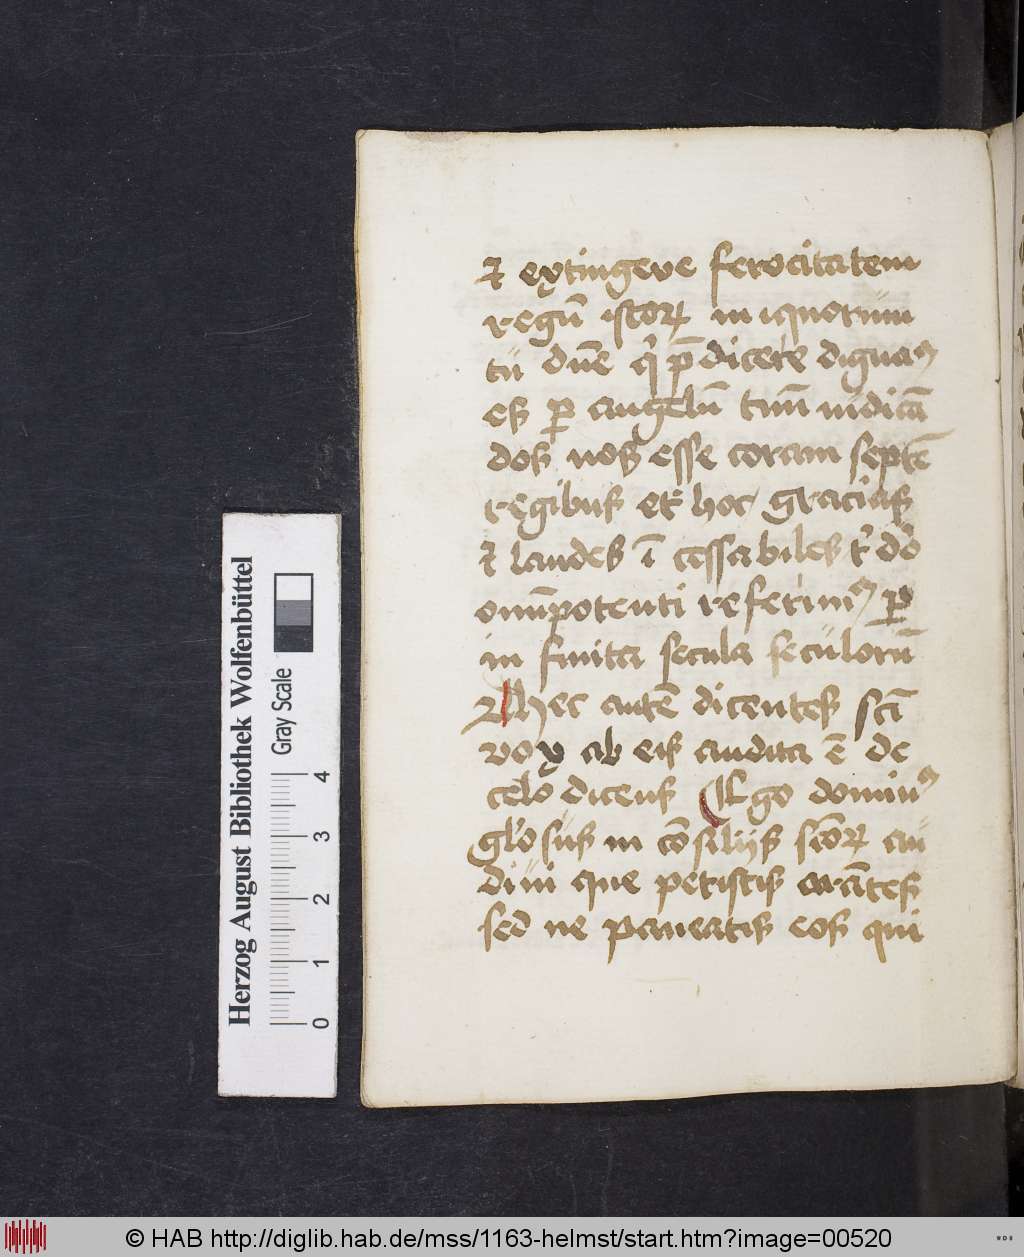 ⁊ extingere ferocitatem
regū istoꝝ iniquorum
tu dn̄e qͥ p̄dicere dignaꝰ
es ꝑ angelū tuū iudicā
dos nos esse coram septē
regibus et hoc gracias
⁊ laudes ī cessabiles t' do
omīpotenti referimꝰ ꝑ
in finita secula seculorū
Hec autē dicentes scā
vox ab eis audita ē de
celo dicens Ego dominꝰ
gl'osus in cōsilijs scōꝝ au
diui que petistis carātes
sed ne paueatis eos qui
Herzog August Bibliothek Wolfenbüttel
Gray Scale
0 1 2 3 4
© HAB http://diglib.hab.de/mss/1163-helmst/start.htm?image=00520